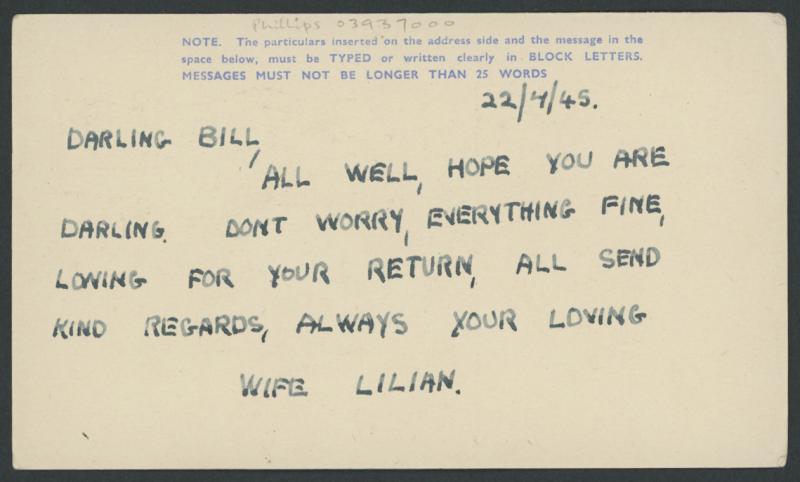 Phillips 03937000
NOTE. The particulars inserted on the address side and the message in the
space below, must be TYPED or written clearly in BLOCK LETTERS.
MESSAGES MUST NOT BE LONGER THAN 25 WORDS
22/4/45.
DARLING BILL,
ALL WELL, HOPE YOU ARE
DARLING. DONT WORRY, EVERYTHING FINE,
LONING FOR YOUR RETURN, ALL SEND
KIND REGARDS, ALWAYS YOUR LOVING
WIFE LILIAN.